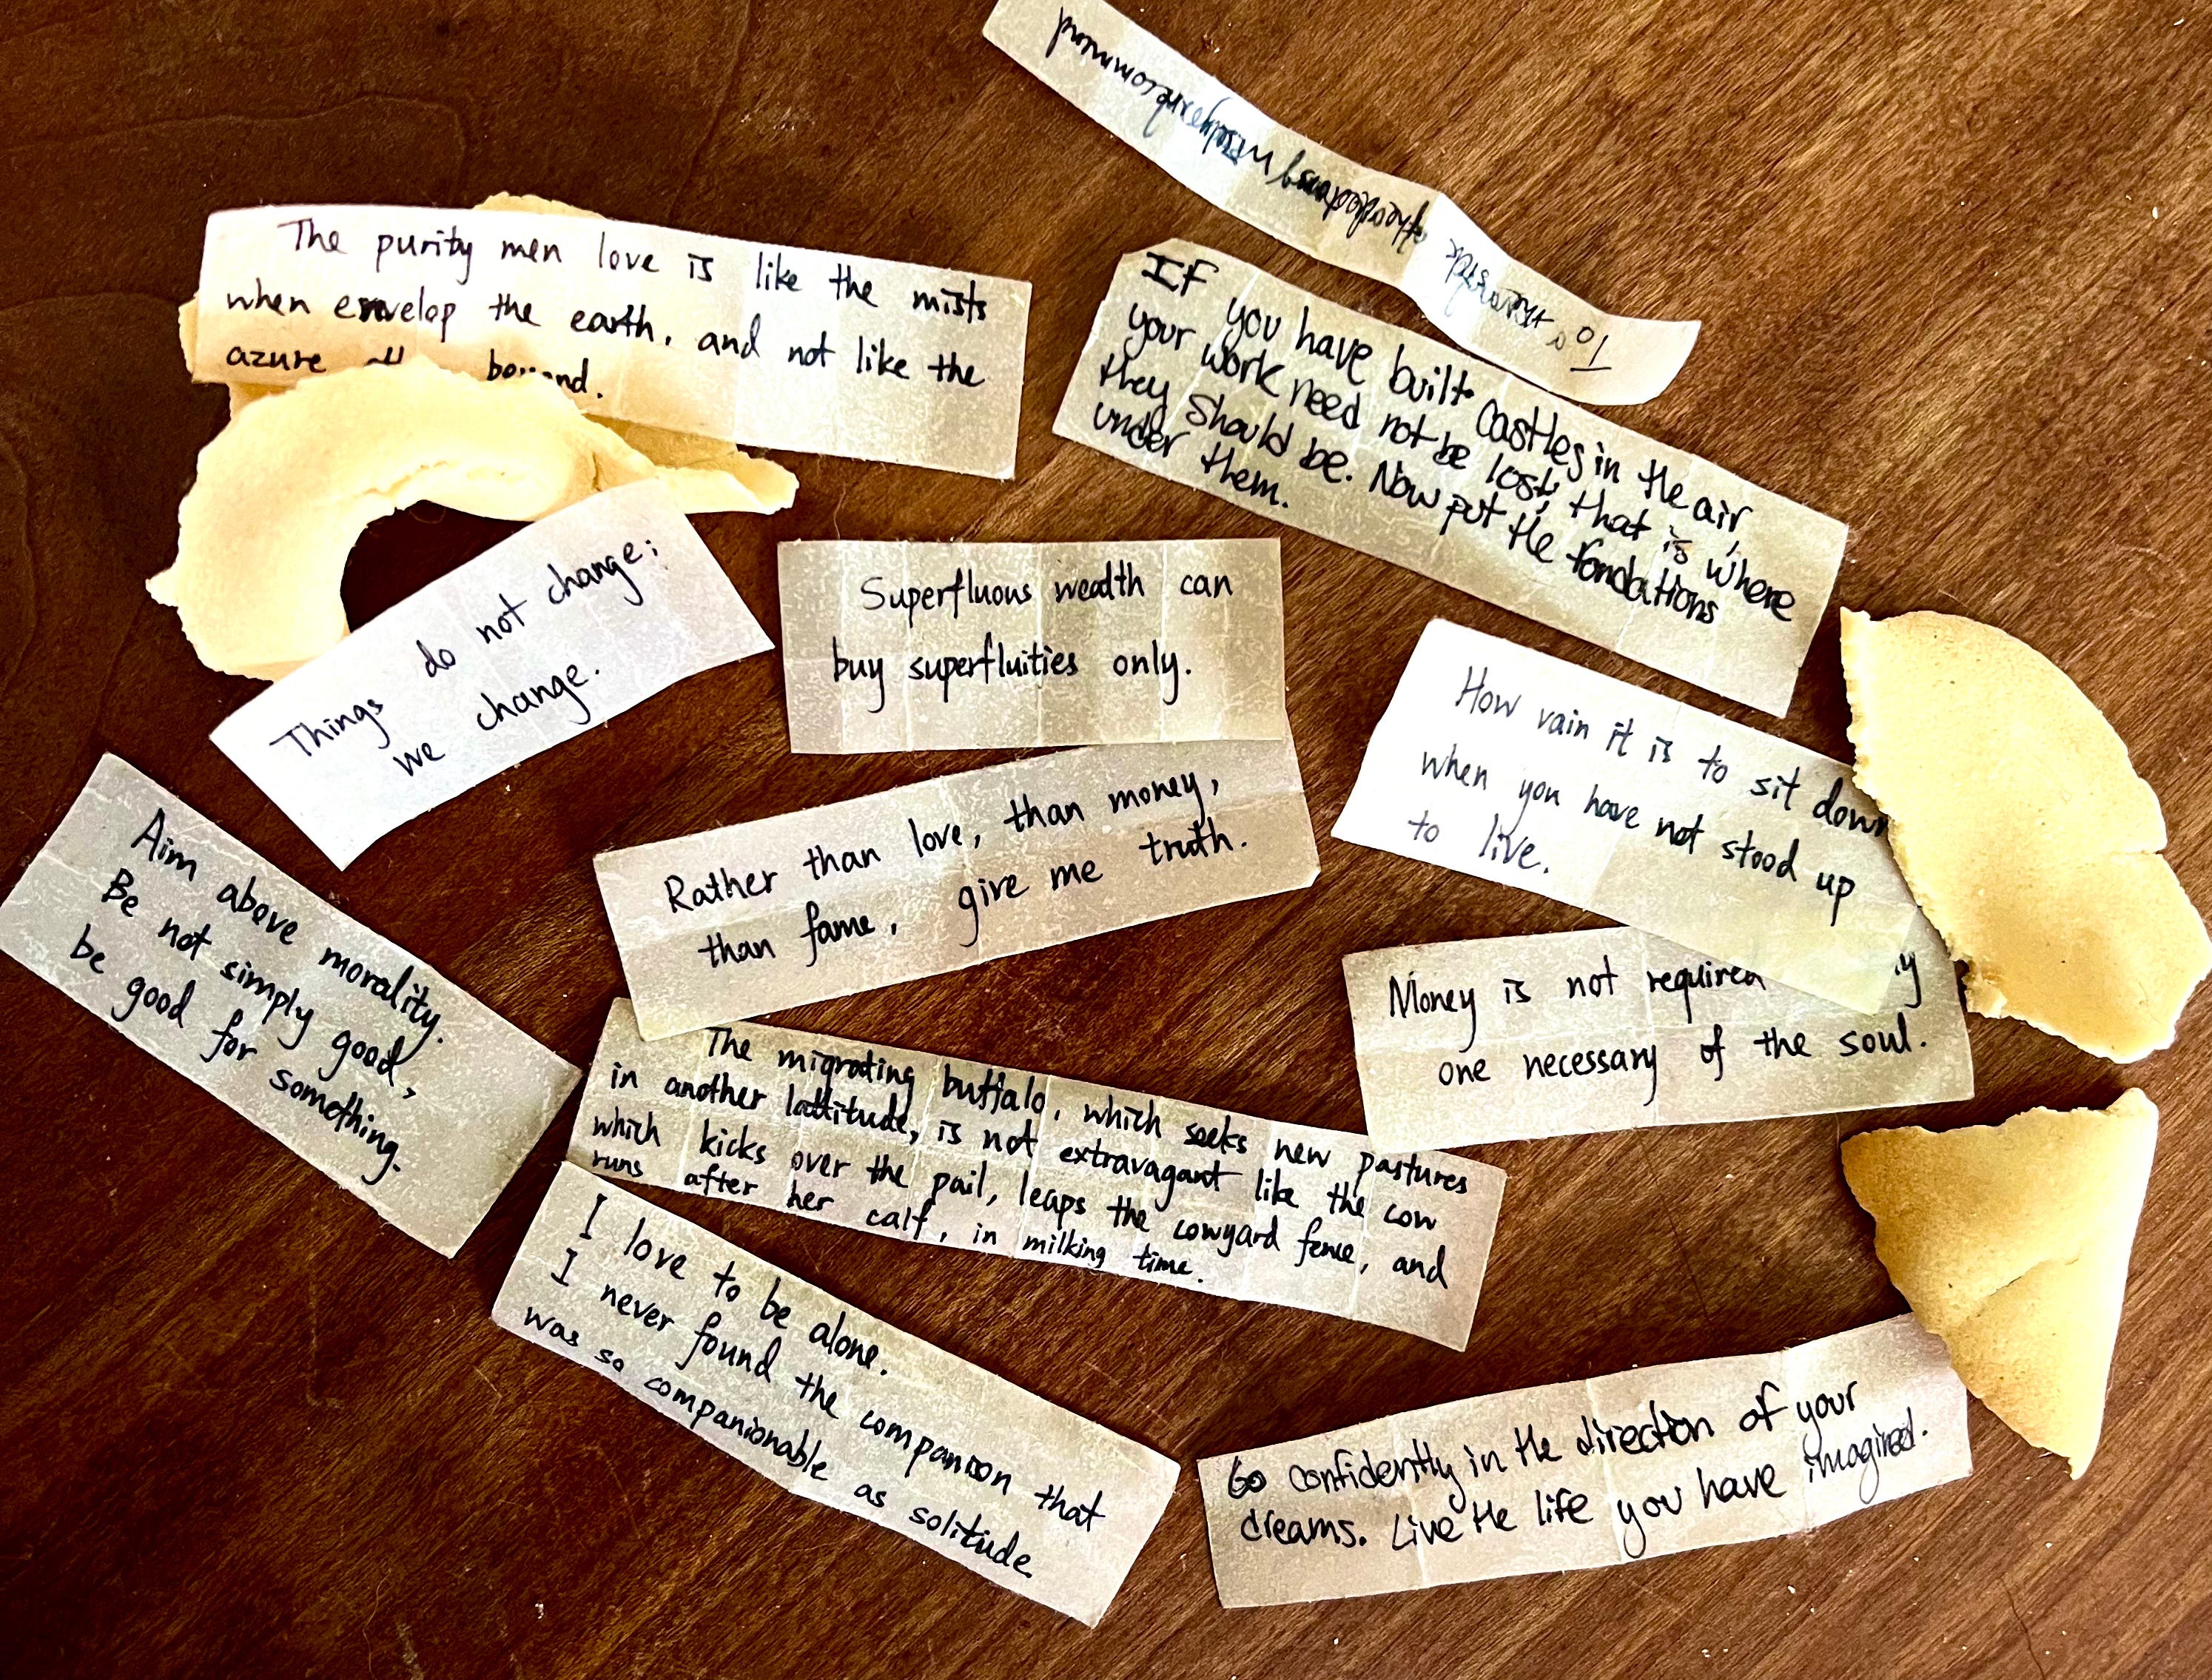 To
The purity men love is like the mists
when envelop the earth, and not like the
azure beyond.
If you have built castles in the air,
your work need not be lost; that is where
they should be. Now put the fondations
under them.
Things do not change;
we change.
Superfluous wealth can
buy superfluities only.
How vain it is to sit down
when you have not stood up
to live.
Rather than love, than money,
than fame, give me truth.
Aim above morality.
Be not simply good,
be good for something.
Money is not required
one necessary of the soul.
The migrating buffalo, which seeks new pastures
in another lattitude, is not extravagant like the cow
which kicks over the pail, leaps the cowyard fence, and
runs after her calf, in milking time.
I love to be alone.
I never found the companion that
was so companionable as solitude.
Go confidently in the direction of your
dreams. Live the life you have imagined.